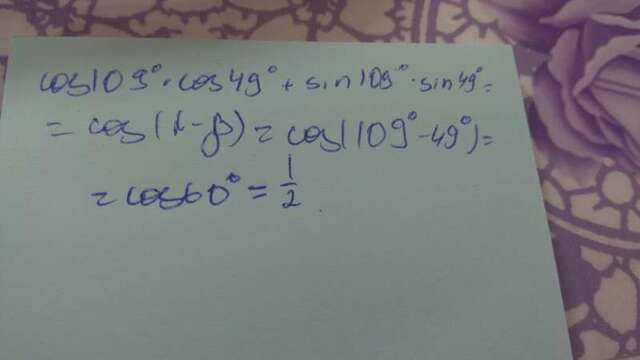 cos109°·cos49° + sin109°·sin49° =
= cos(α-β) = cos(109°-49°) =
= cos60° = 1/2